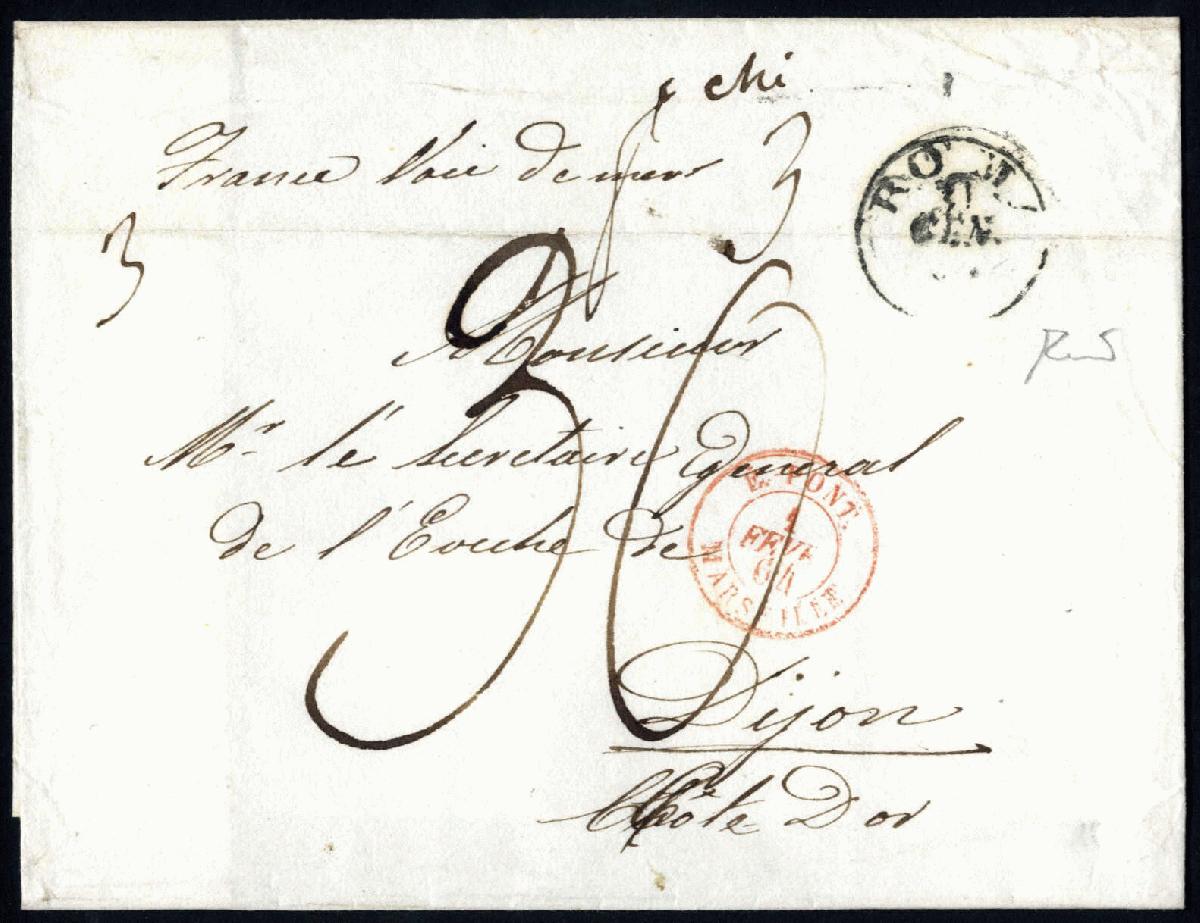 chi
France Voie de mer
3
3
ROMA
GEN.
30
Monsieur
Mr. le Secretaire General
de l'Eveché de
E. PONT.
1
FEVR
64
MARSEILLE
Dijon
Côte D'or